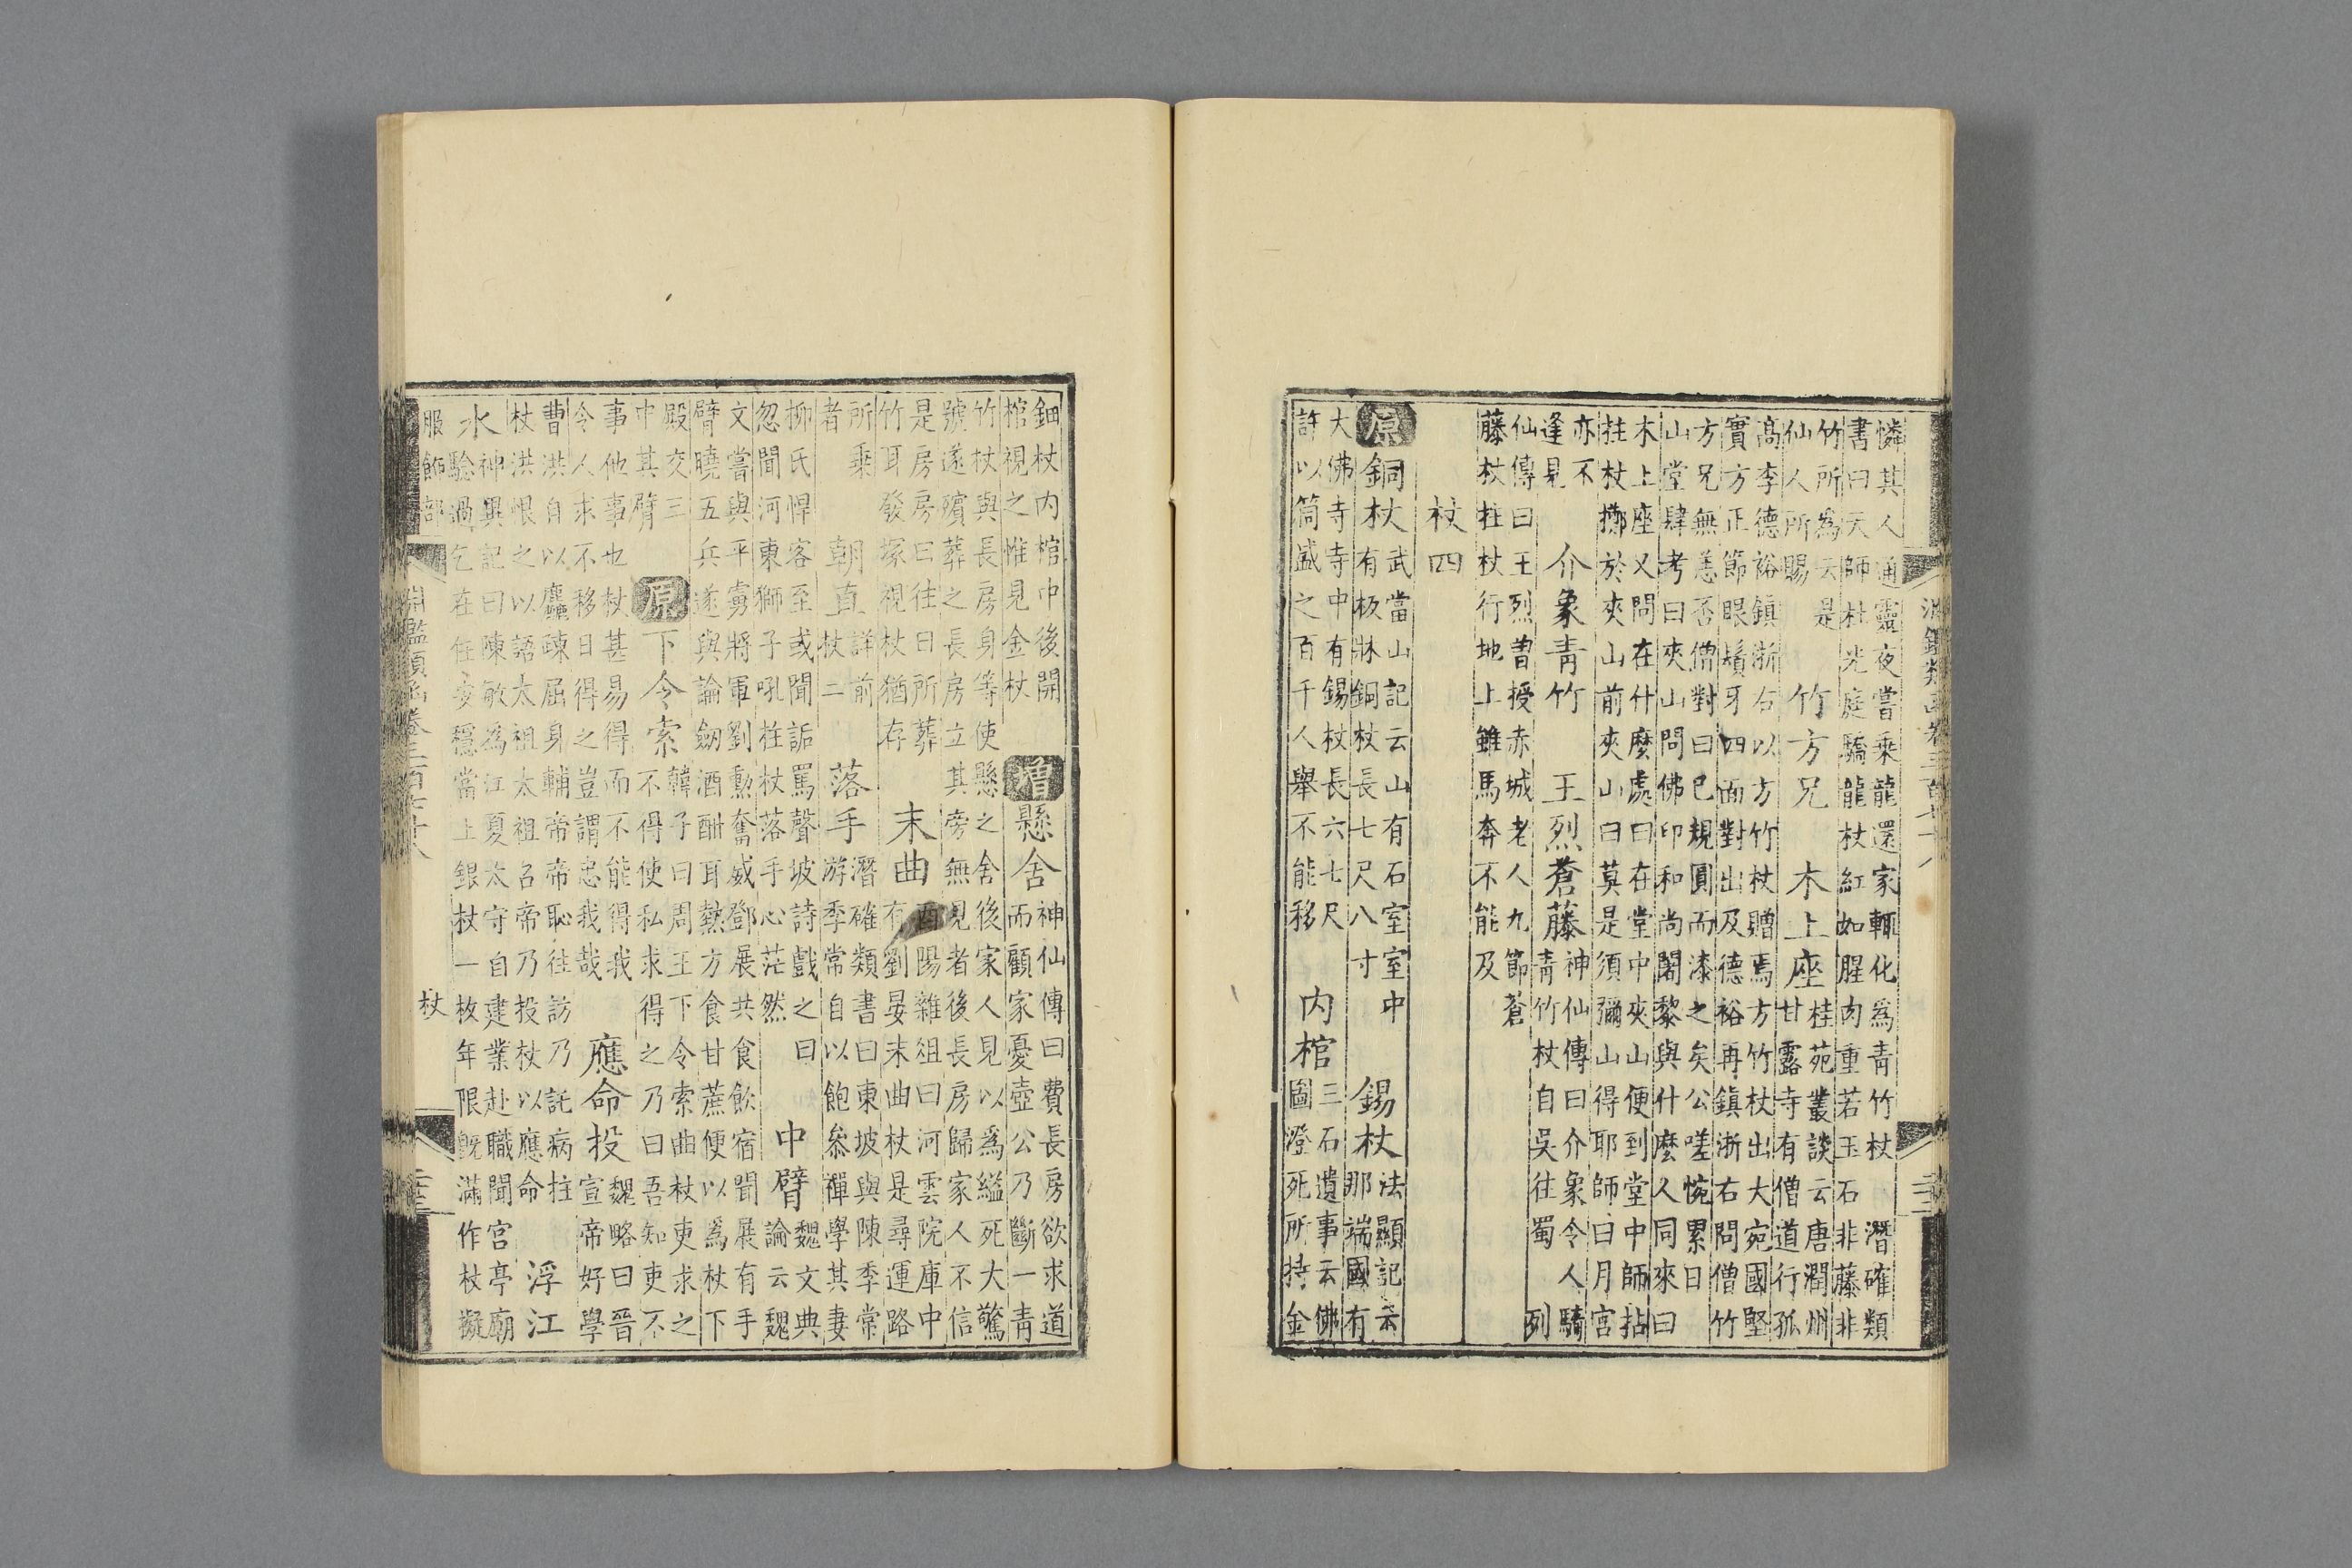 憐其人通靈夜嘗乘龍還家輒化爲青竹杖 潛確類
書曰天師杜光庭驕龍杖紅如腥肉重若玉石非藤非
竹所爲云是
仙人所賜
竹方兄 木上座
桂苑叢談云唐潤州
甘露寺有僧道行孤
高李德裕鎮浙右以方竹杖贈焉方竹杖出大宛國堅
實方正節眼鬚牙四面對出及德裕再鎮浙右問僧竹
方兄無恙否僧對曰已規圓而漆之矣公嗟惋累日
山堂肆考曰夾山問佛印和尚闍黎與什麼人同來曰
木上座又問在什麼處曰在堂中夾山便到堂中師拈
拄杖擲於夾山前夾山曰莫是須彌山得耶師曰月宮
亦不
逢見
介象青竹 王烈蒼藤
神仙傳曰介象令人騎
青竹杖自吳往蜀 列
仙傳曰王烈曽授赤城老人九節蒼
藤杖拄杖行地上雖馬奔不能及
杖四
原 銅杖
武當山記云山有石室室中
有板牀銅杖長七尺八寸
錫杖
法顯記云
那端國有
大佛寺寺中有錫杖長六七尺
許以筒盛之百千人舉不能移
内棺
三石遺事云佛
圖澄死所持金
鈿杖内棺中後開
棺視之惟見金杖
增 懸舍
神仙傳曰費長房欲求道
而顧家憂壺公乃斷一青
竹杖與長房身等使懸之舍後家人見以爲縊死大驚
號遂殯葬之長房立其旁無見者後長房歸家人不信
是房房曰往日所葬
竹耳發塚視杖猶存
末曲
酉陽雜俎曰河雲院庫中
有劉晏末曲杖是尋運路
所乘
者
朝直
詳前
杖二
落手
潛確類書曰東坡與陳季常
游季常自以飽叅禪學其妻
柳氏悍客至或聞詬罵聲坡詩戲之曰
忽聞河東獅子吼拄杖落手心茫然
中臂
魏文典
論云魏
文嘗與平虜將軍劉勳奮威鄧展共食飲宿聞展有手
臂曉五兵遂與論劒酒酣耳熱方食甘蔗便以爲杖下
殿交三
中其臂
原 下令索
韓子曰周王下令索曲杖吏求之
不得使私求得之乃曰吾知吏不
事他事也杖甚易得而不能得我
令人求不移日得之豈謂忠我哉
應命投
魏略曰晉
宣帝好學
曹洪自以麤疎屈身輔帝帝恥往訪乃託病拄
杖洪恨之以語太祖太祖召帝乃投杖以應命
浮江
水
神異記曰陳敏爲江夏太守自建業赴職聞宮亭廟
驗過乞在任安穩當上銀杖一枚年限旣滿作杖擬
服飾部 杖